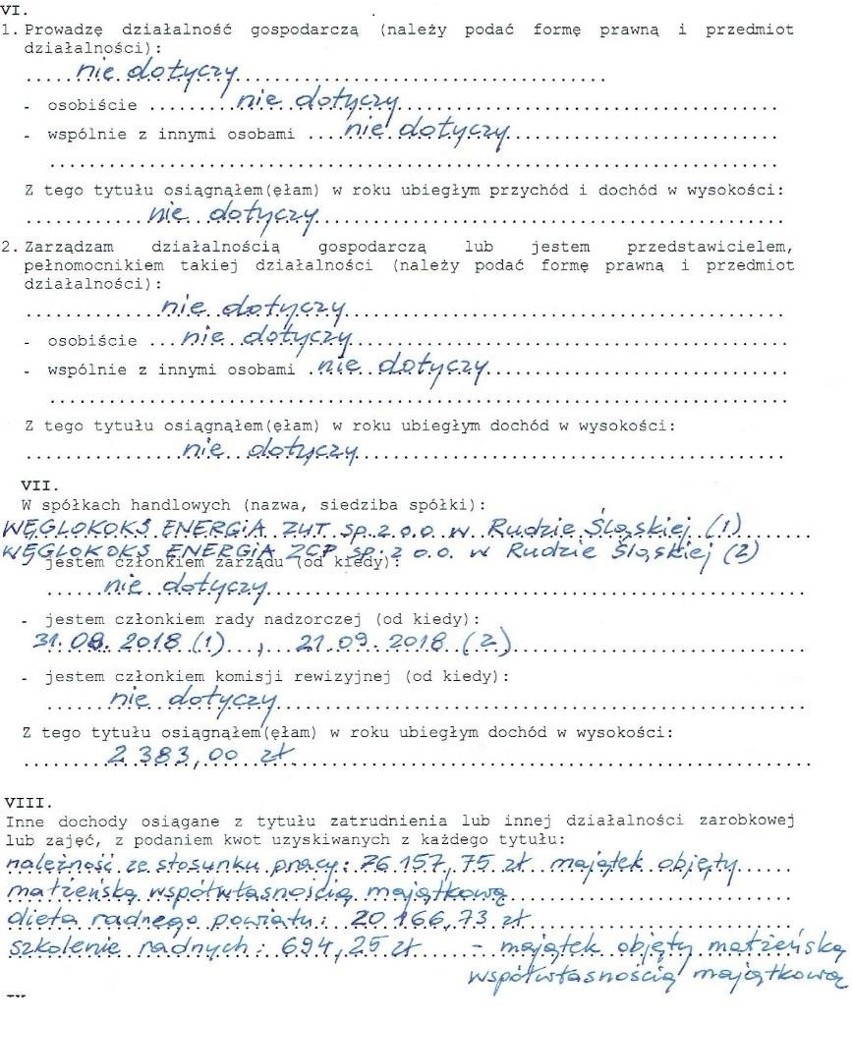 VI.
1. Prowadzę działalność gospodarczą (należy podać formę prawną i przedmiot
działalności):
.....nie dotyczy......................................
- osobiście ........nie dotyczy......................................
- wspólnie z innymi osobami ....nie dotyczy...........................
......................................................................
Z tego tytułu osiągnąłem(ęłam) w roku ubiegłym przychód i dochód w wysokości:
............nie dotyczy.............................................
2. Zarządzam działalnością gospodarczą lub jestem przedstawicielem,
pełnomocnikiem takiej działalności (należy podać formę prawną i przedmiot
działalności):
.............nie dotyczy..........................................
- osobiście ...nie dotyczy..........................................
- wspólnie z innymi osobami .nie dotyczy.............................
......................................................................
Z tego tytułu osiągnąłem(ęłam) w roku ubiegłym dochód w wysokości:
...............nie dotyczy.........................................
VII.
W spółkach handlowych (nazwa, siedziba spółki):
WĘGLOKOKS ENERGIA ZUT sp. z o.o. w Rudzie Śląskiej (1)
WĘGLOKOKS ENERGIA ZCP sp. z o.o. w Rudzie Śląskiej (2)
- jestem członkiem zarządu (od kiedy):
.....nie dotyczy....................................................
- jestem członkiem rady nadzorczej (od kiedy):
31.08.2018 (1) , 21.09.2018 (2)
- jestem członkiem komisji rewizyjnej (od kiedy):
......nie dotyczy...................................................
Z tego tytułu osiągnąłem(ęłam) w roku ubiegłym dochód w wysokości:
........2 383,00 zł.................................................
VIII.
Inne dochody osiągane z tytułu zatrudnienia lub innej działalności zarobkowej
lub zajęć, z podaniem kwot uzyskiwanych z każdego tytułu:
należność ze stosunku pracy: 76 157,75 zł majątek objęty
małżeńską współwłasnością majątkową
dieta radnego powiatu: 20 166,73 zł
szkolenie radnych: 694,25 zł - majątek objęty małżeńską
współwłasnością majątkową